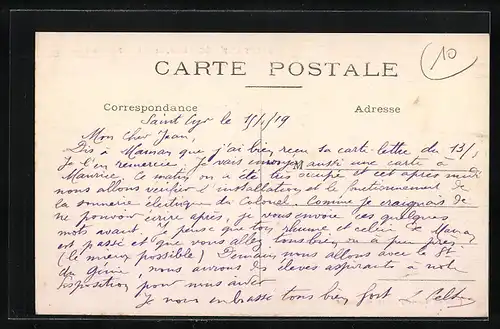 10
CARTE POSTALE
Correspondance
Adresse
Saint Cyr le 15/1/19
Mon cher Jean,
Dis à Maman que j'ai bien reçu sa carte-lettre du 13/1
Je l'en remercie. Je vais envoyer aussi une carte à
Maurice. Ce matin on a été très occupé et cet après midi
nous allons vérifier l'installation et le fonctionnement de
la sonnerie électrique du Colonel. Comme je craignais de
ne pouvoir écrire après, je vous envoie ces quelques
mots avant. Je pense que ton rhume et celui de Maman
est passé et que vous allez tous bien ou à peu près
(le mieux possible) Demain nous allons avec le
du génie, nous aurons des élèves aspirants à notre
disposition pour nous aider
Je vous embrasse tous bien fort